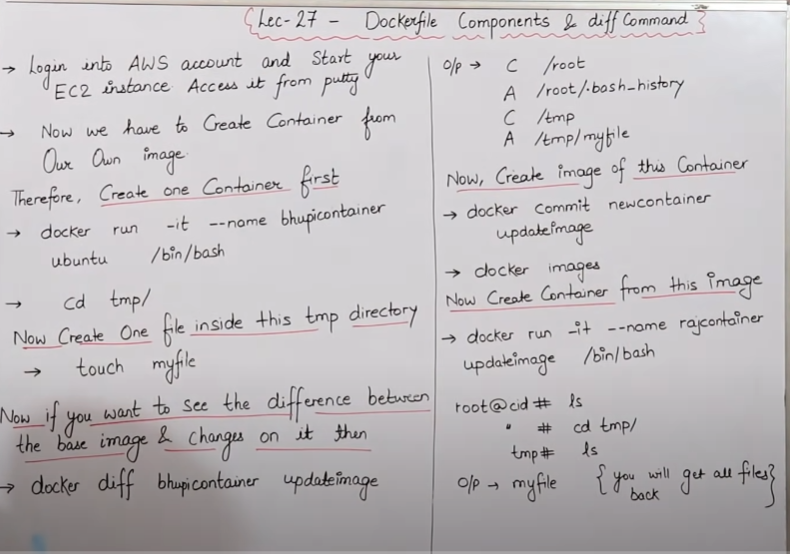 {Lec-27 - Dockerfile Components & diff Command}
→ Login into AWS account and Start your
EC2 instance Access it from putty
→ Now we have to Create Container from
Our Own image.
Therefore, Create one Container first
→ docker run -it --name bhupicontainer
ubuntu /bin/bash
→ cd tmp/
Now Create One file inside this tmp directory
→ touch myfile
Now if you want to see the difference between
the base image & changes on it then
→ docker diff bhupicontainer updateimage
O/p → C /root
A /root/.bash_history
C /tmp
A /tmp/myfile
Now, Create image of this Container
→ docker commit newcontainer
updateimage
→ docker images
Now Create Container from this image
→ docker run -it --name rajcontainer
updateimage /bin/bash
root@cid # ls
" # cd tmp/
tmp# ls
O/p → myfile {you will get all files}
back